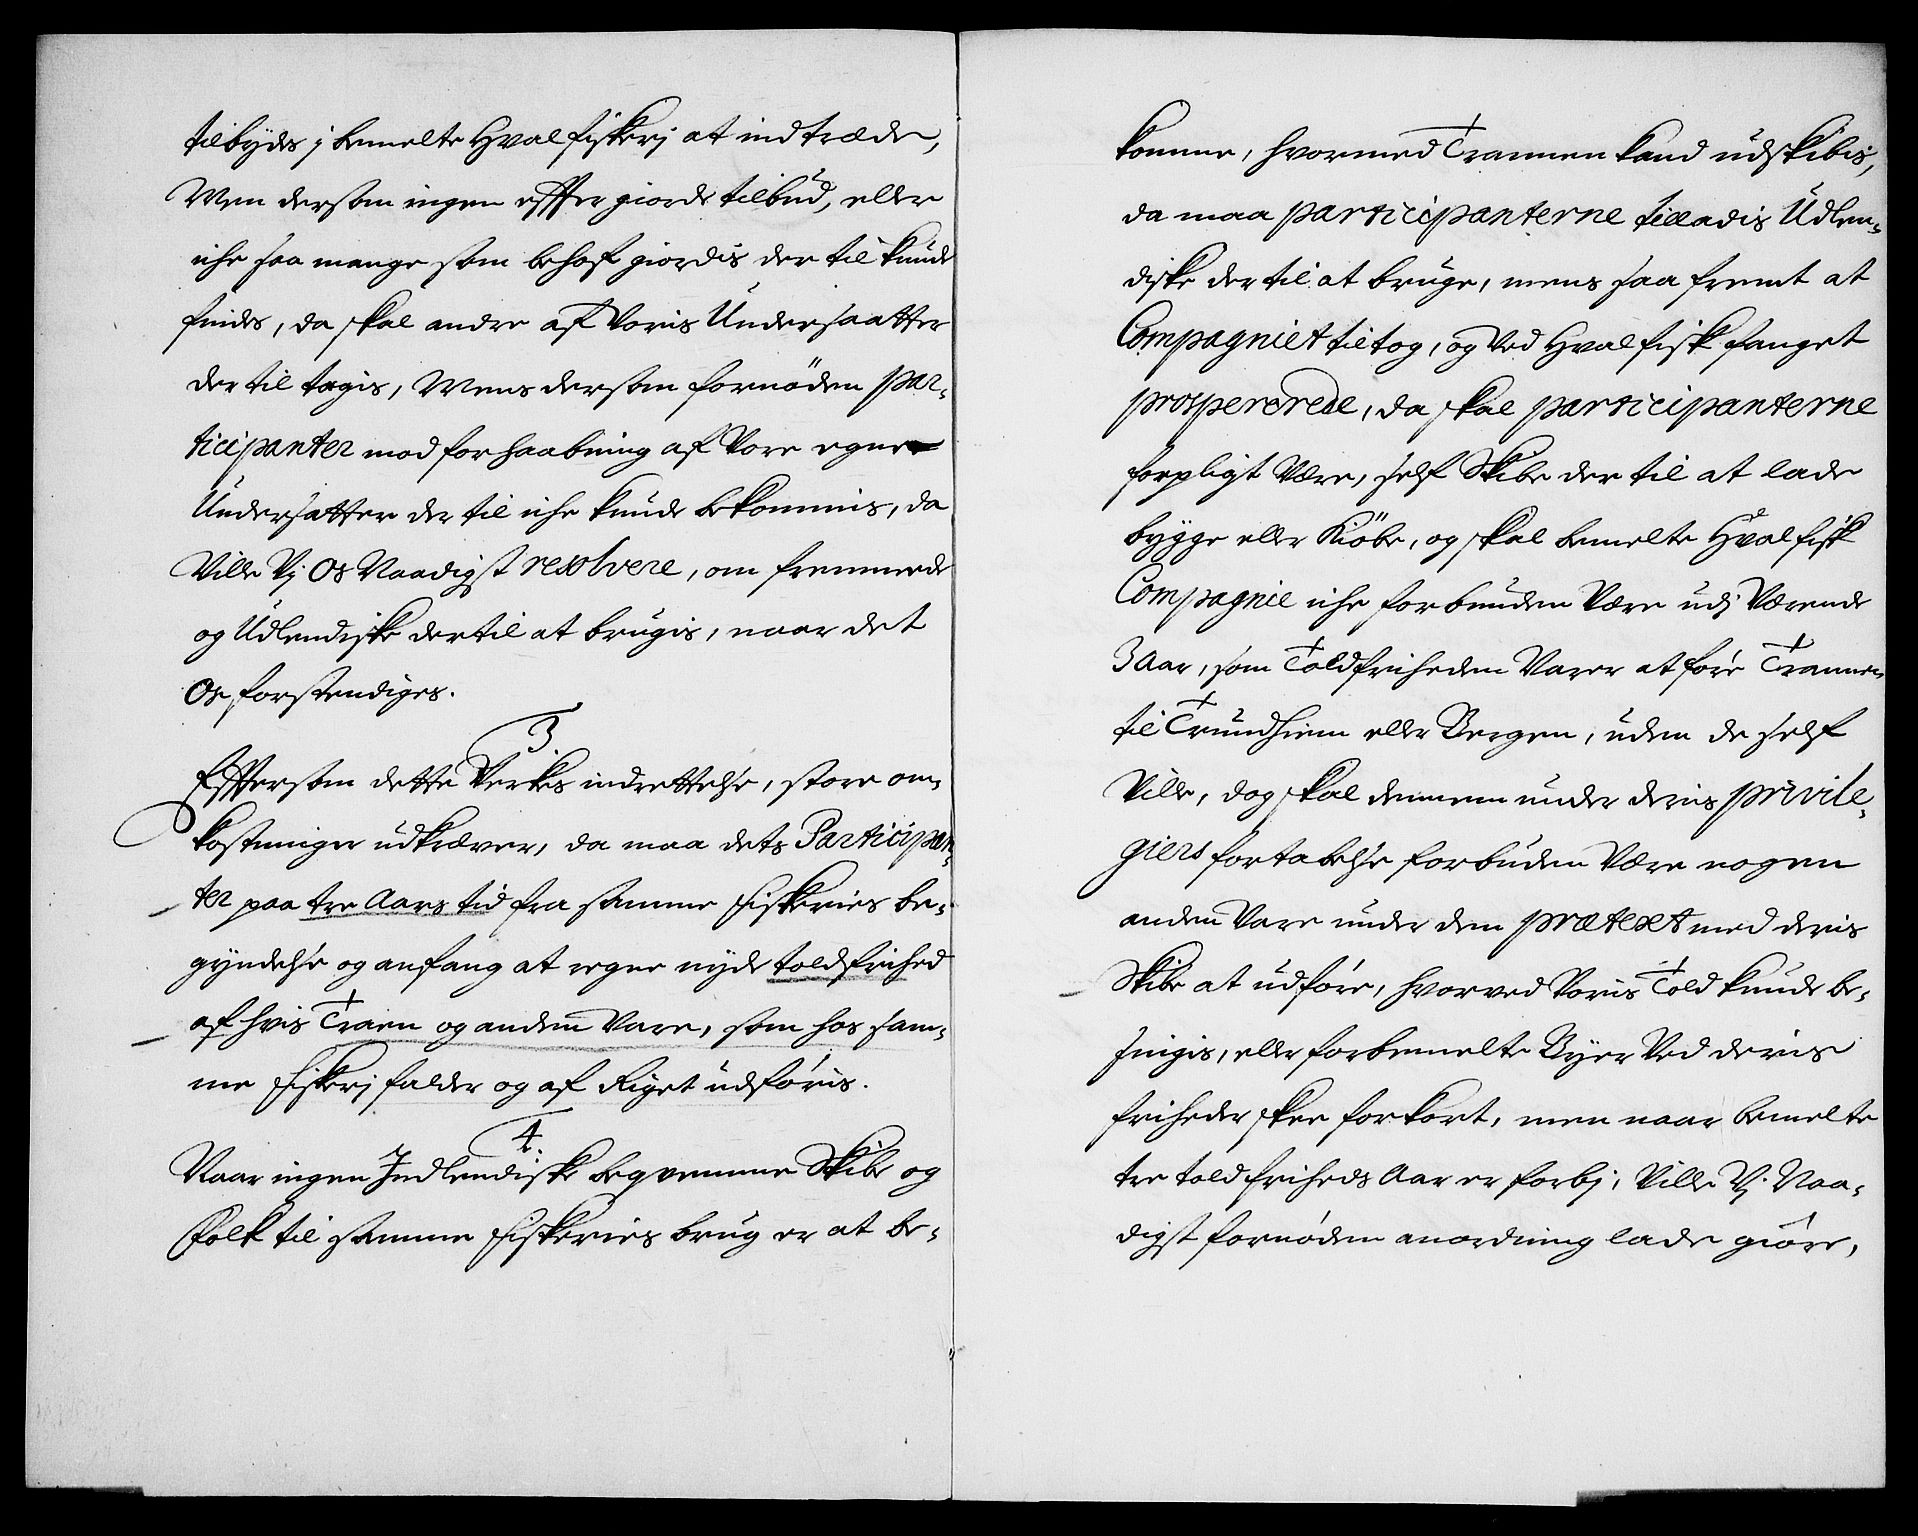 tilbydes j bemelte Hvalfiskerj at indtræde,
Men dersom ingen effter giorde tilbud, eller
iche saa mange som behof giordis der til kunde
findes, da skal andre af Voris Undersaatter
der til tagis, Mens dersom fornøden par-
ticipanter mod forhaabning af Vore egne
Undersatter der til iche kunde bekommis, da
Ville Vj Os Naadigst resolvere, om fremmede
og Udlendiske dertil at brugis, naar det
Os forstendiges.
3
Efftersom dette Verkes indrettelse, store om-
kostninger udkræver, da maa dets Participan-
ter paa tre Aars tid fra samme fiskeries be-
gyndelse og anfang at regne nyde toldfrihed
af hvis Traen og anden Vare, som hos sam-
me fiskerj falder og af Riget udføris.
4
Naar ingen Indlendiske beqvemme Skibe og
Folk til samme fiskeries brug er at be-
komme, hvormed Trannen kand udskibis,
da maa participanterne tilladis Udlen-
diske der til at bruge, mens saa fremt at
Compagniet tiltog, og Ved Hvalfisk fanget
prospererede, da skal participanterne
forpligt Være, self Skibe der til at lade
bygge eller Kiöbe, og skal bemelte Hvalfisk
Compagnie iche forbunden Være udj Værende
3 Aar, som Toldfriheden Varer at före Trannen
til Trundhiem eller Bergen, uden de self
Ville, dog skal dennem under deris privile-
giers fortabelse forbuden Være nogen
anden Vare under dem prætext med deris
Skibe at udföre, hvorved Voris Told kunde be-
suigis, eller forbemelte Byer Ved deris
friheder skee forkort, men naar bemelte
tre toldfriheds Aar er forbj, Ville Vj Naa-
digst fornøden anordning lade giöre,